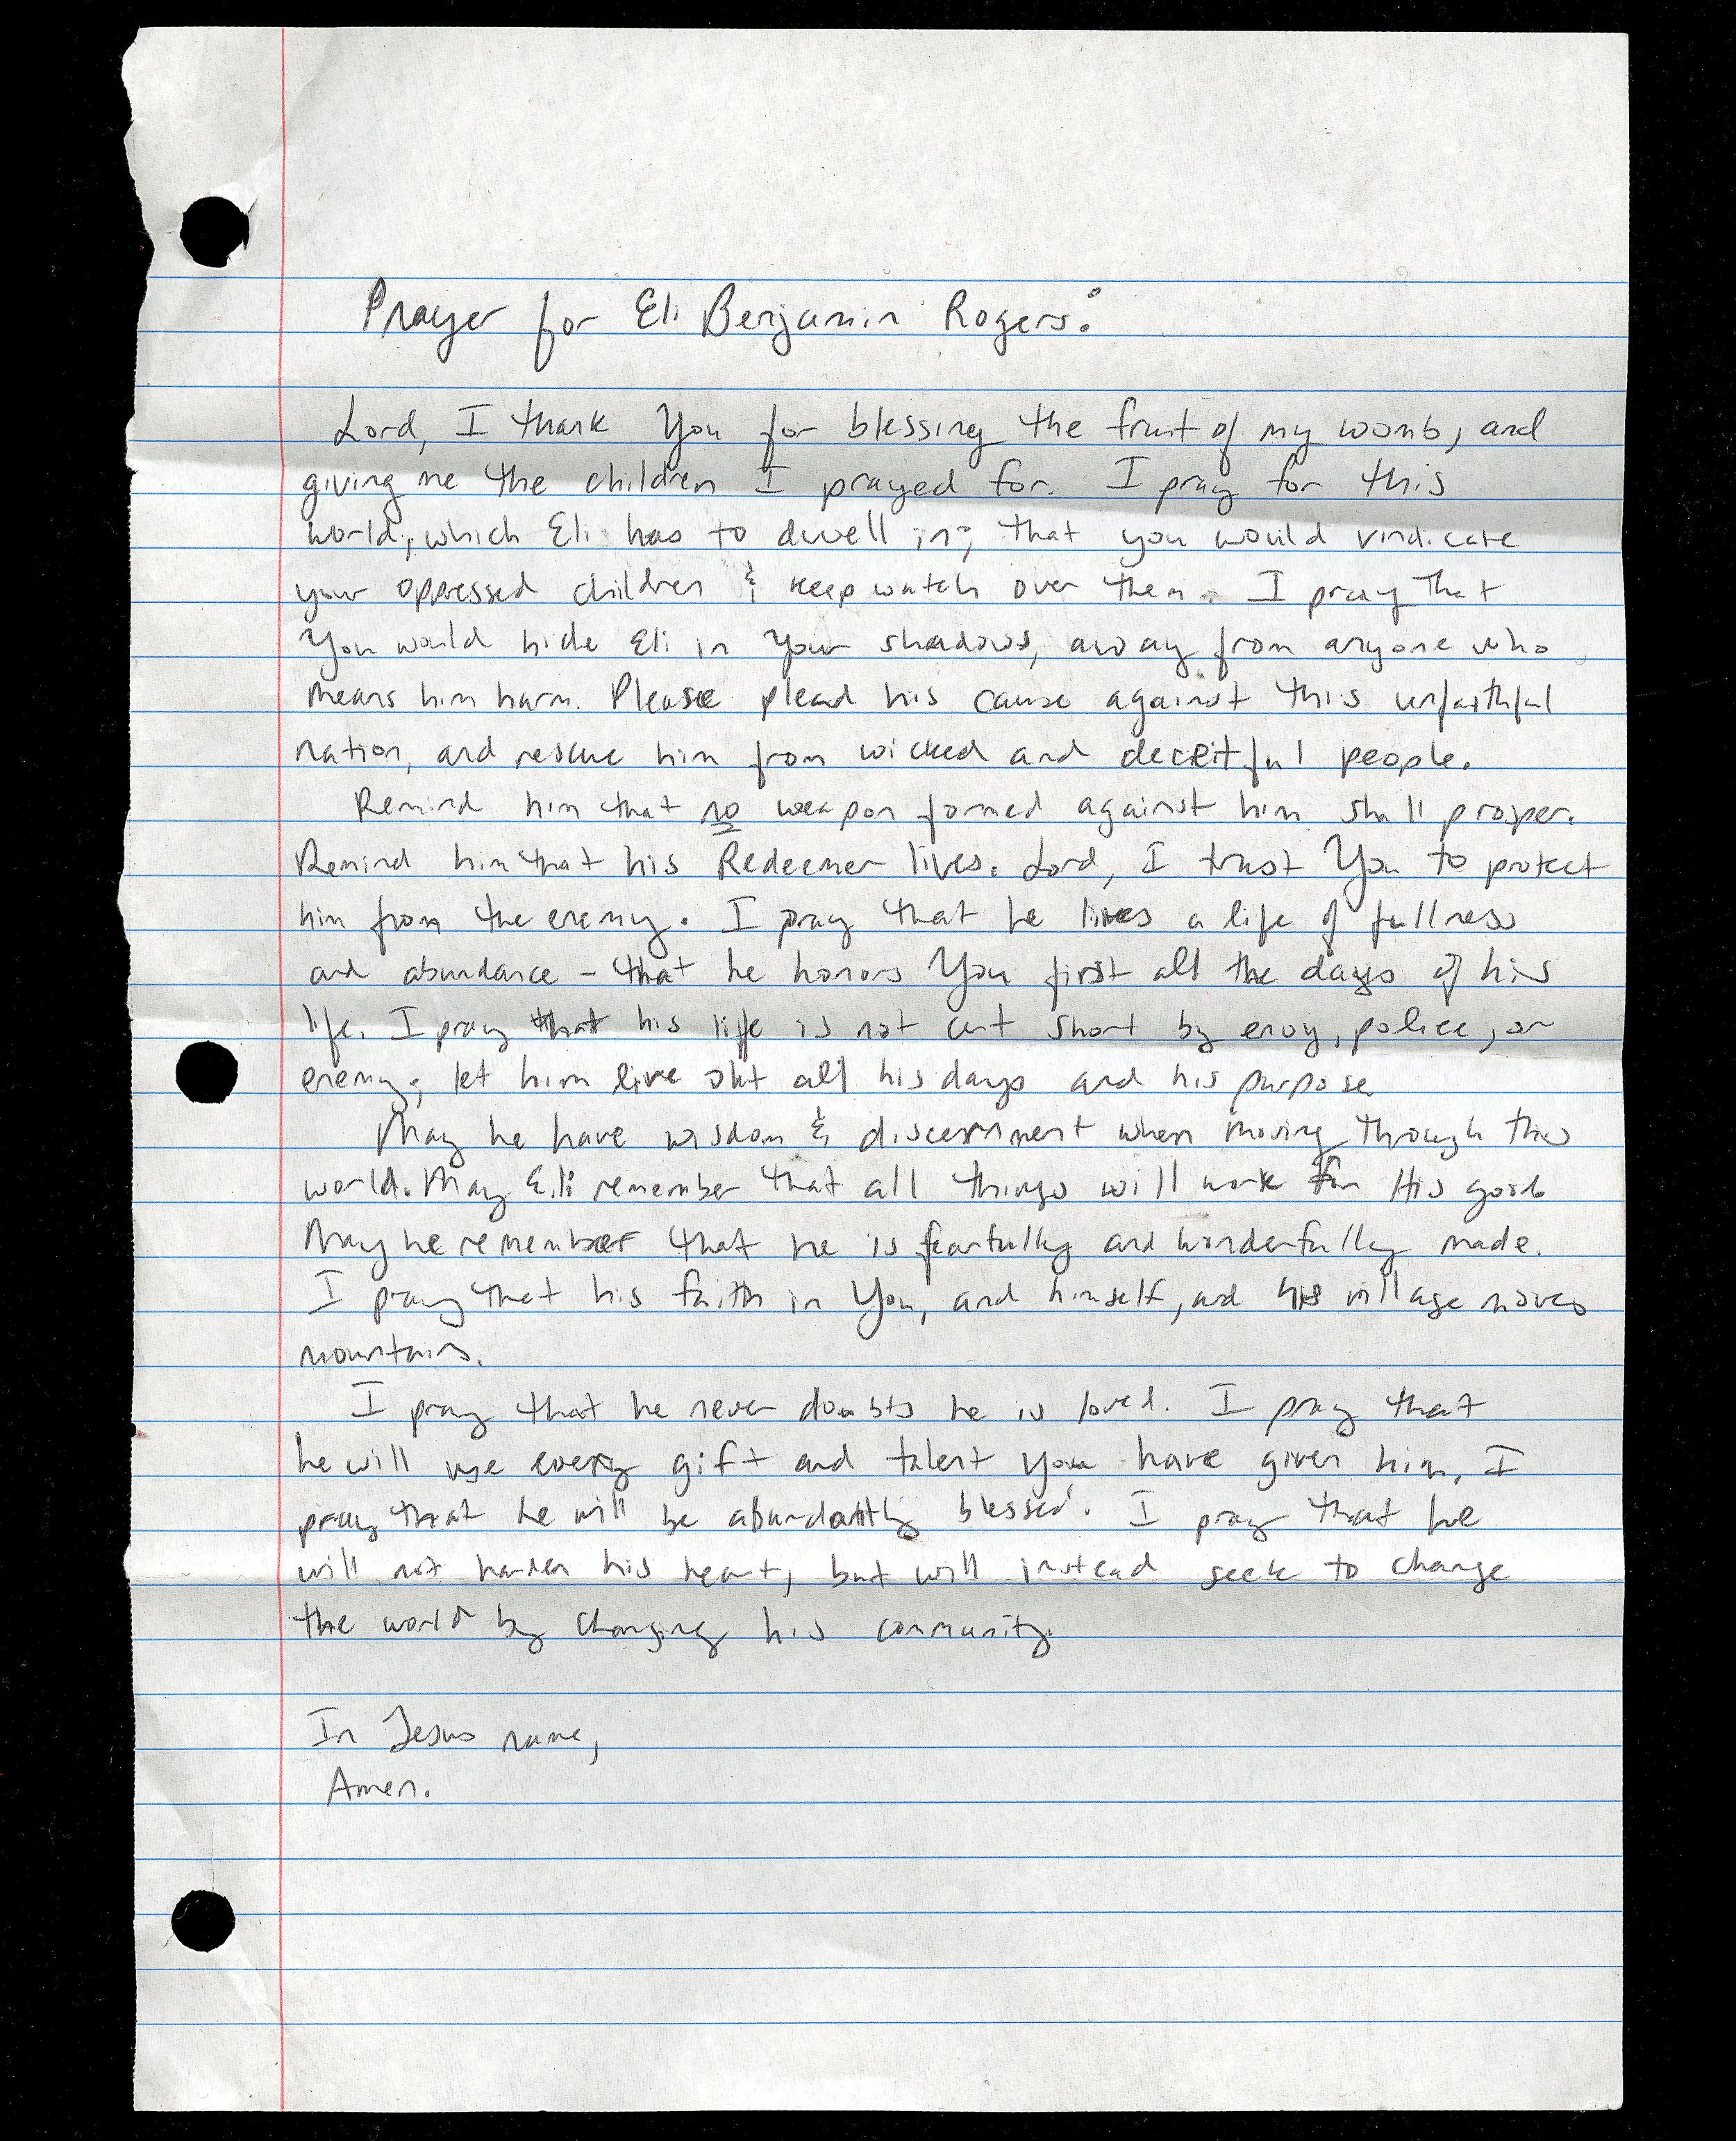 Prayer for Eli Benjamin Rogers:
Lord, I thank You for blessing the fruit of my womb, and
giving me the children I prayed for. I pray for this
world, which Eli has to dwell in; that you would vindicate
your oppressed children & keep watch over them. I pray that
You would hide Eli in Your shadows, away from anyone who
means him harm. Please plead his cause against this unfaithful
nation, and rescue him from wicked and deceitful people.
Remind him that no weapon formed against him shall prosper.
Remind him that his Redeemer lives. Lord, I trust You to protect
him from the enemy. I pray that he lives a life of fullness
and abundance - that he honors You first all the days of his
life. I pray that his life is not cut short by envy, police, or
enemy; let him live out all his days and his purpose.
May he have wisdom & discernment when moving through this
world. May Eli remember that all things will work for His good.
May he remember that he is fearfully and wonderfully made.
I pray that his faith in You, and himself, and his village moves
mountains.
I pray that he never doubts he is loved. I pray that
he will use every gift and talent you have given him. I
pray that he will be abundantly blessed. I pray that he
will not harden his heart, but will instead seek to change
the world by changing his community.
In Jesus name,
Amen.